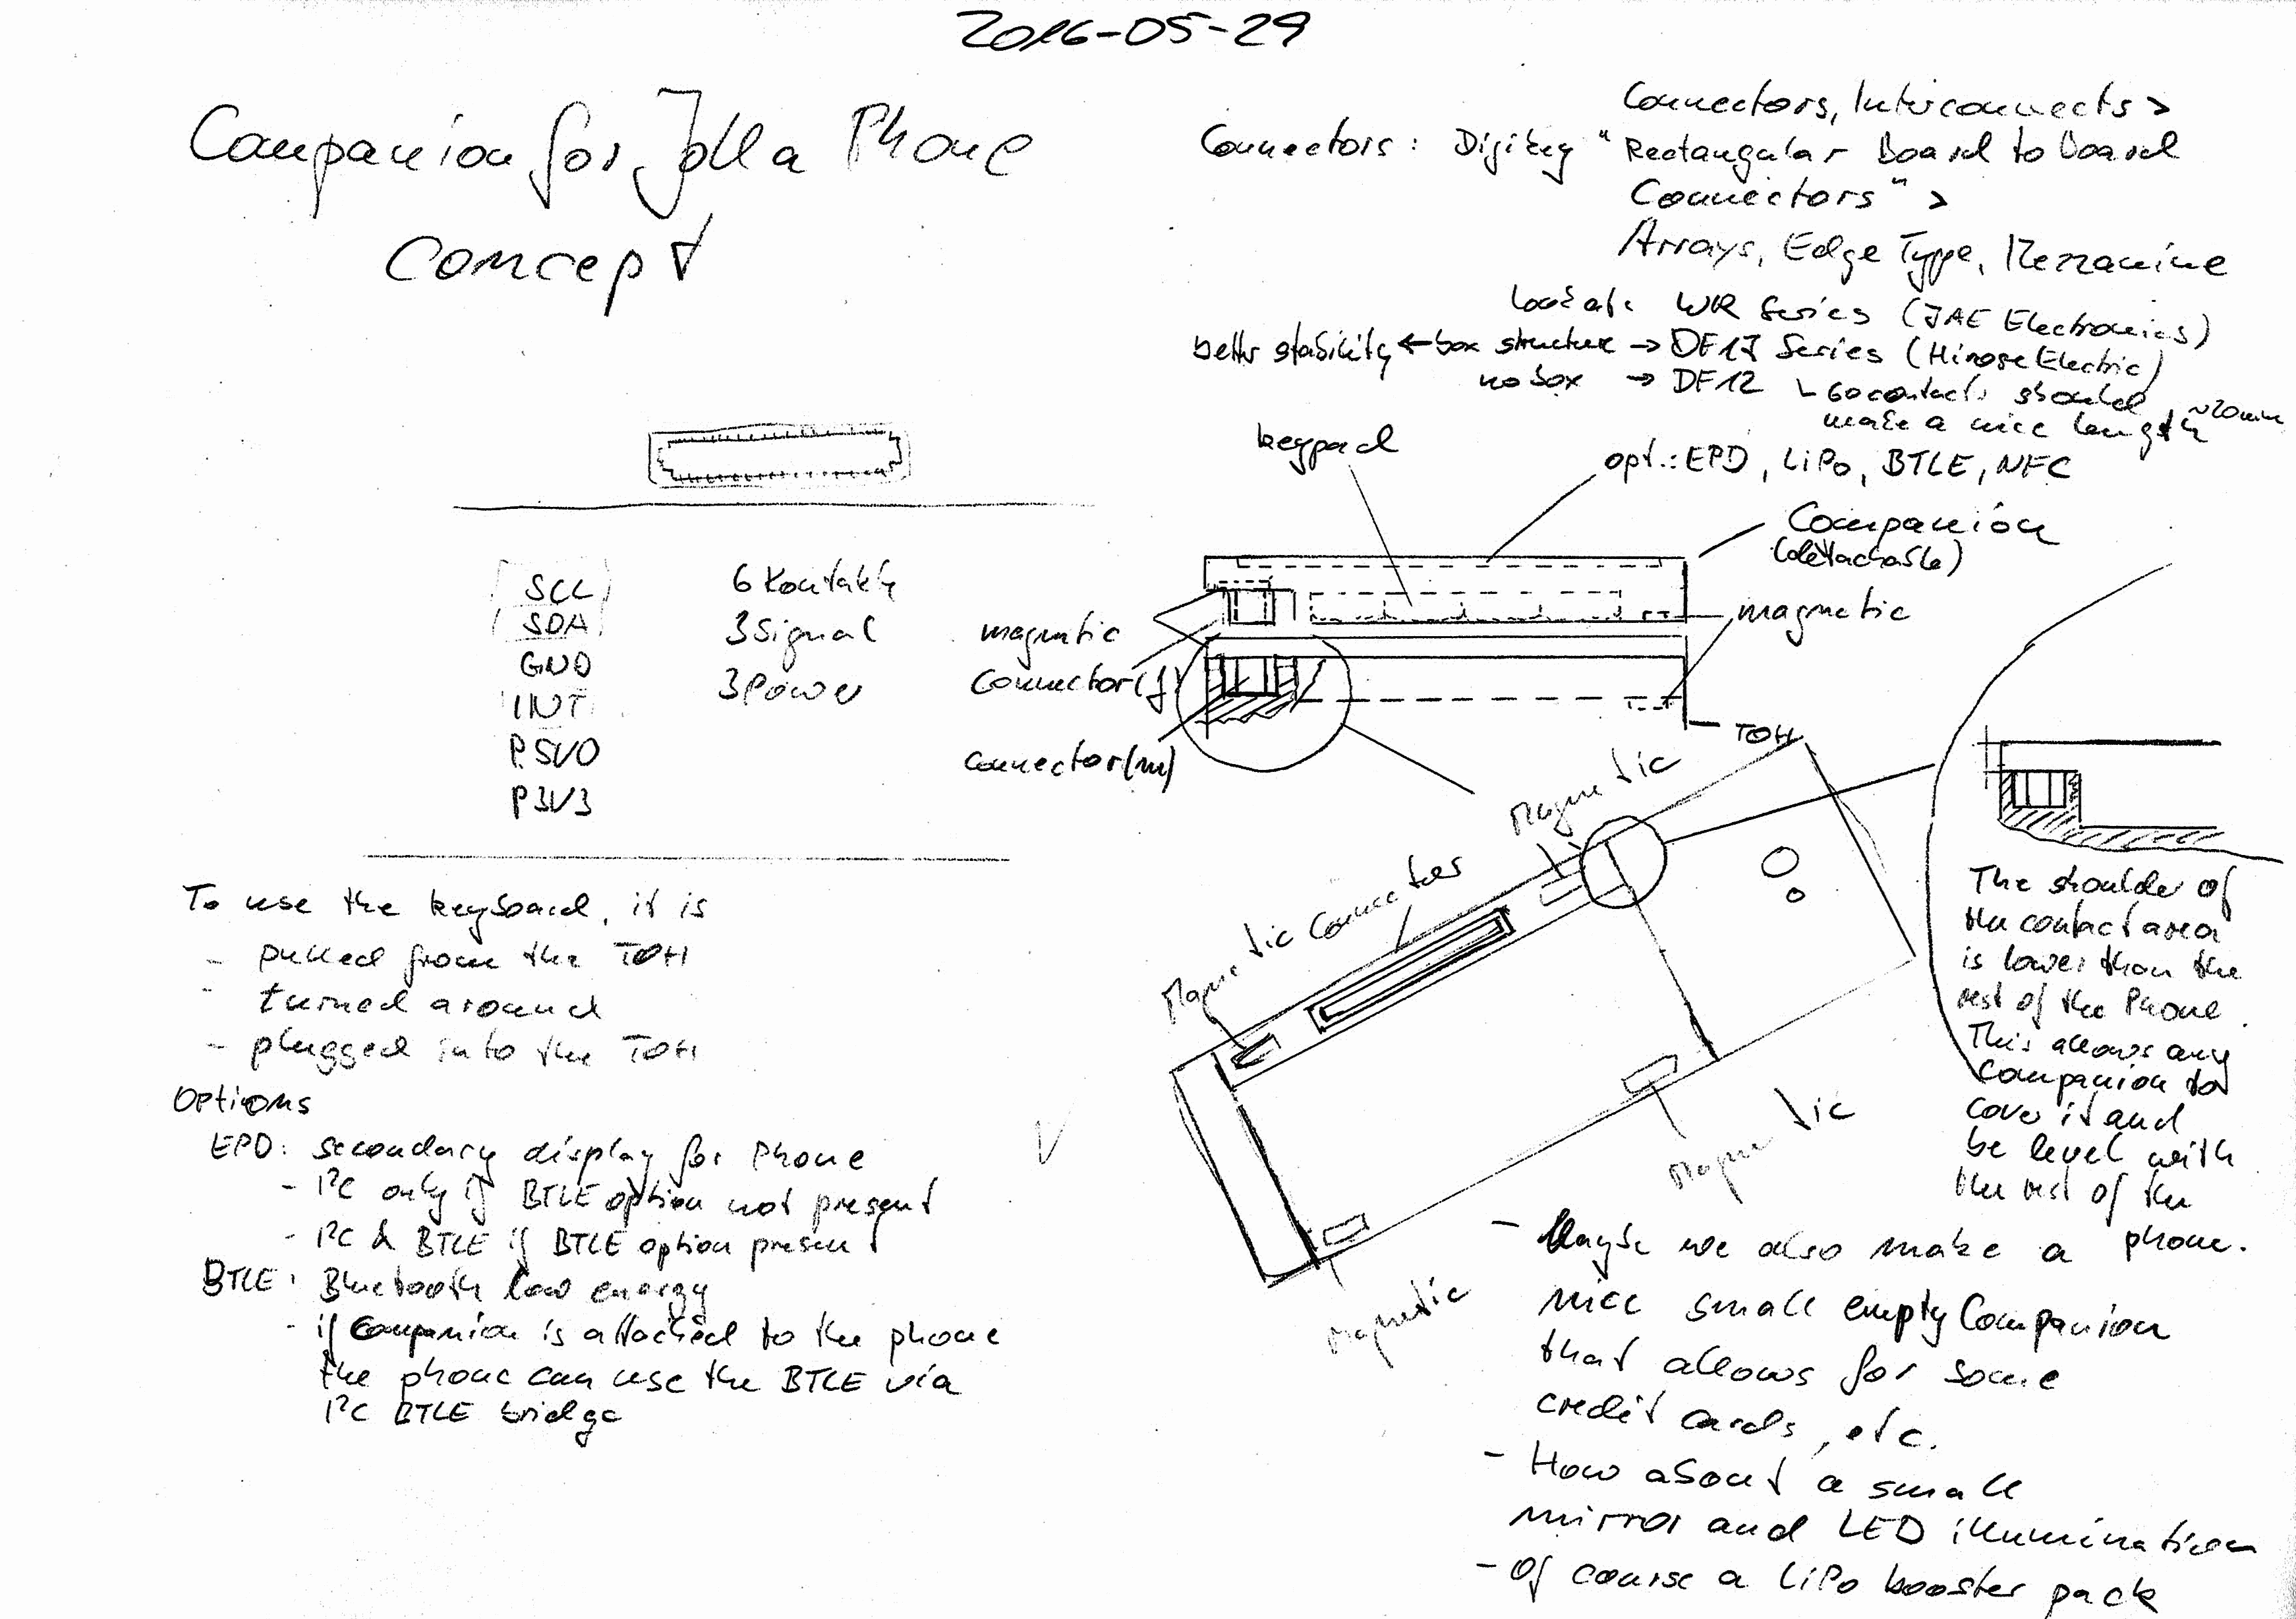 2016-05-29
Companion for Jolla Phone
Concept
SCL
SDA
GND
INT
P5V0
P3V3
6 Kontakte
3 Signal
3 Power
To use the keyboard, it is
- pulled from the TOH
- turned around
- plugged into the TOH
Options
EPD: secondary display for Phone
- I²C only if BTLE option not present
- I²C & BTLE if BTLE option present
BTLE: Bluetooth low energy
- if Companion is attached to the phone
the phone can use the BTLE via
I²C BTLE bridge
Connectors, Interconnects >
Connectors: Digikey "Rectangular Board to Board
Connectors" >
Arrays, Edge Type, Mezzanine
Look at: WR Series (JAE Electronics)
better stability ← box structure → DF17 Series (Hirose Electric)
no box → DF12
60 contacts should
make a nice length ~20mm
keypad
opt.: EPD, LiPo, BTLE, NFC
Companion
(detachable)
magnetic
magnetic
connector(f)
connector(m)
TOH
Magnetic
Connector
Magnetic
Magnetic
Magnetic
The shoulder of
the contact area
is lower than the
rest of the Phone.
This allows any
Companion to
cover it and
be level with
the rest of the
phone.
- Maybe we also make a
nice small empty Companion
that allows for some
credit cards, etc.
- How about a small
mirror and LED illumination
- Of course a LiPo booster pack